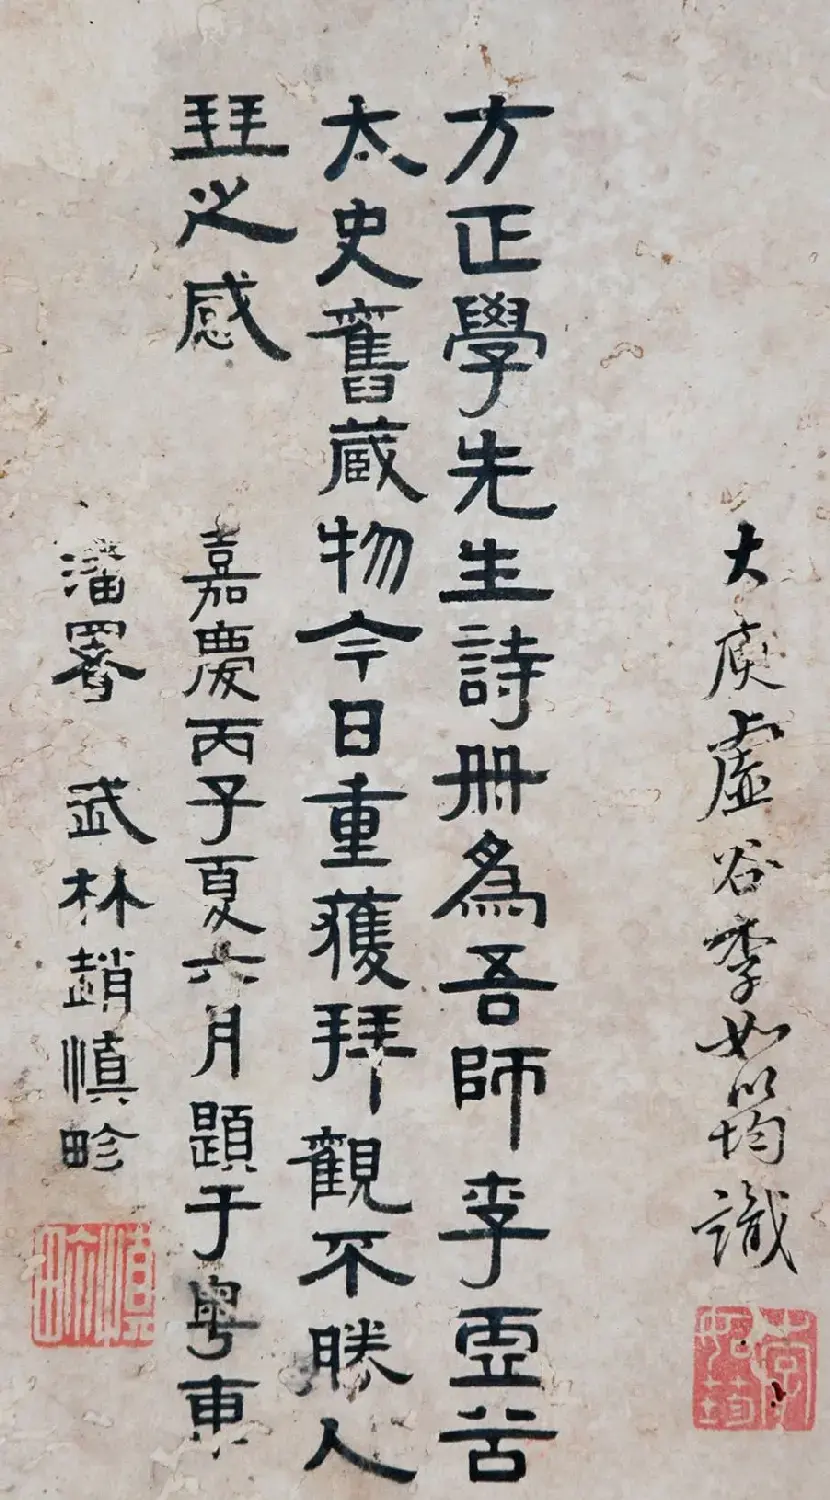 大庾虛谷李如筠識
李如筠
方正學先生詩冊為吾師李虛谷
太史舊藏物今日重獲拜觀不勝人
琴之感
嘉慶丙子夏六月題于粵東
藩署 武林趙慎畛
慎畛